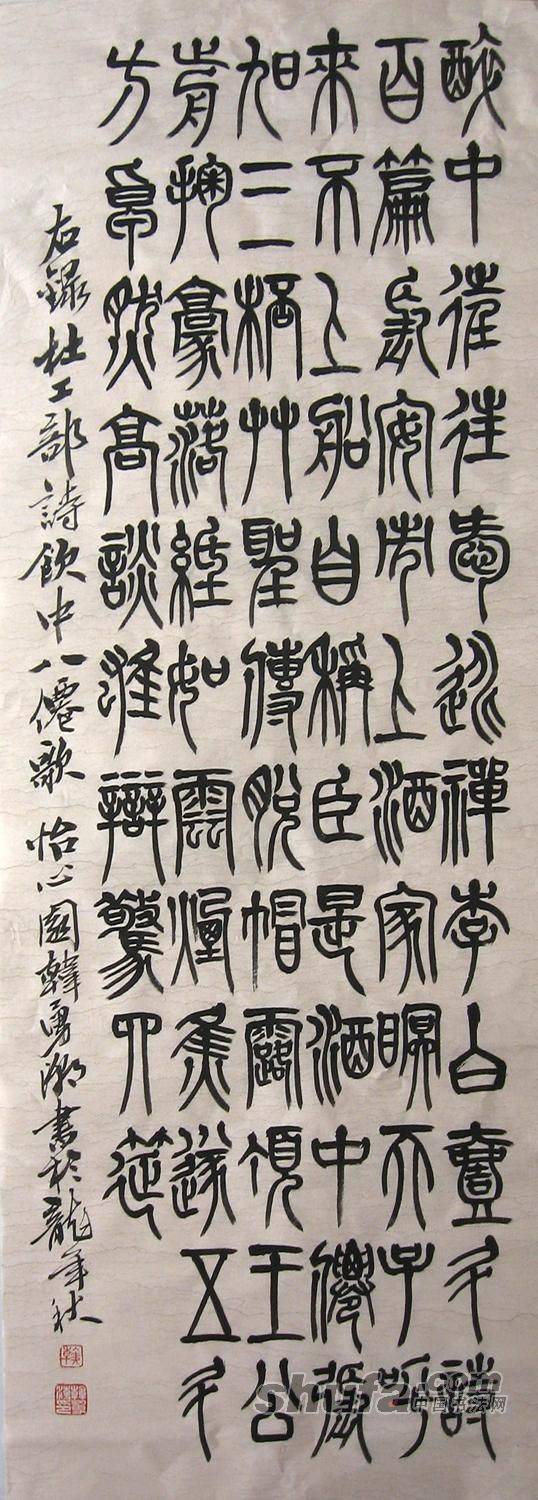 醉中往往愛逃禪李白壹斗詩
百篇長安市上酒家眠天子呼
來不上船自稱臣是酒中僊張
旭三桮艸聖傳脫帽露頂王公
前揮豪落紙如雲煙焦遂五斗
方卓然高談雄辯驚四筵
右錄杜工部詩飲中八僊歌 怡心園韓勇書於龍年秋
shufa.com
中国书法网